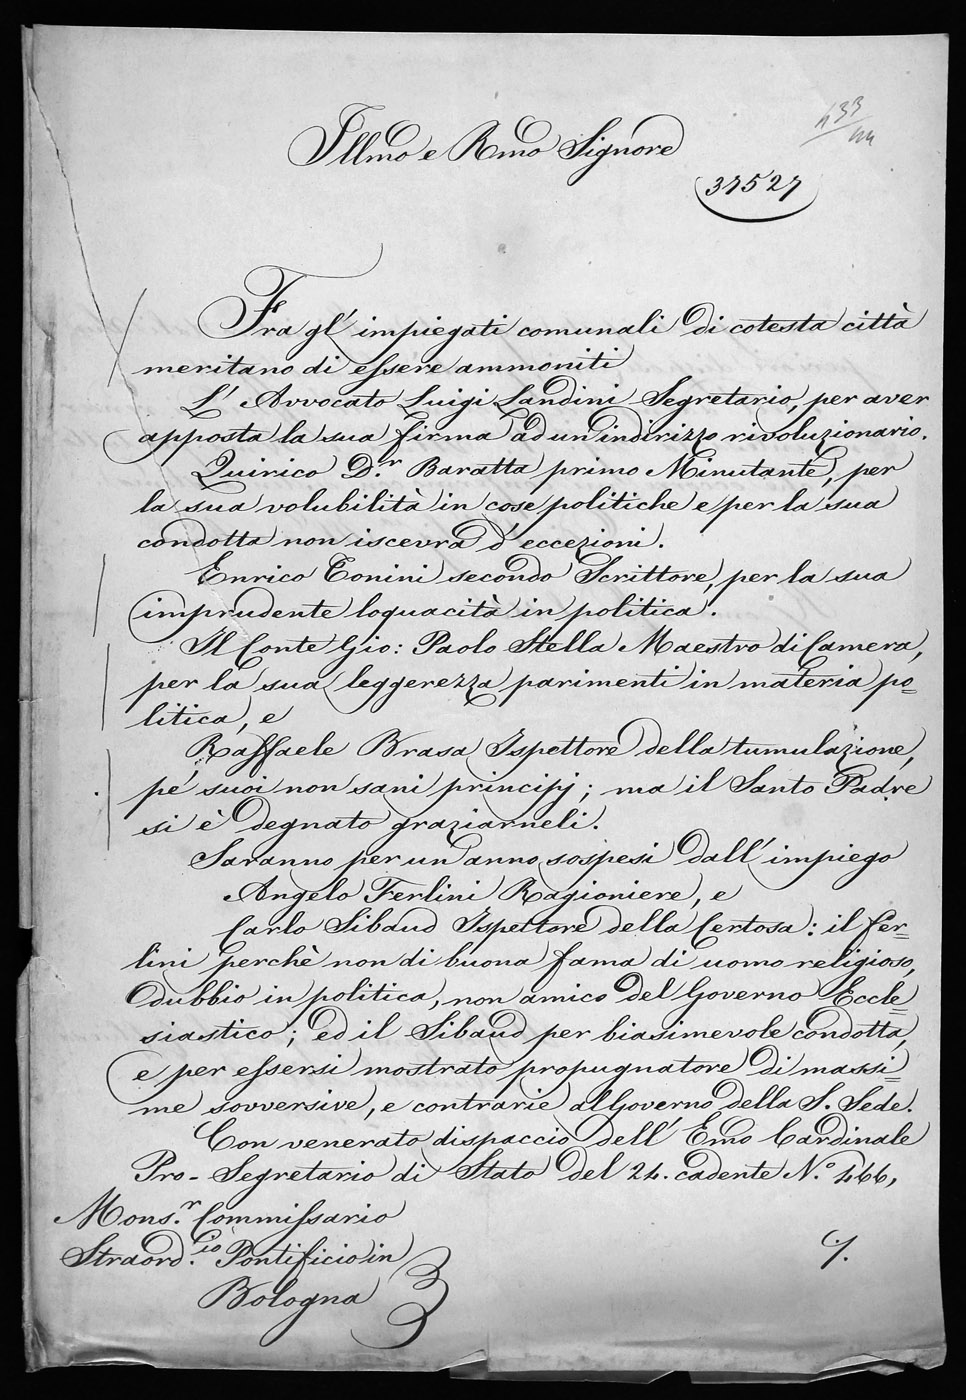 Illmo e Rmo Signore
433/44
37527
Fra gl' impiegati comunali di cotesta città
meritano di essere ammoniti
L' Avvocato Luigi Landini Segretario, per aver
apposta la sua firma ad un indirizzo rivoluzionario.
Quirico D.r Baratta primo Minutante, per
la sua volubilità in cose politiche e per la sua
condotta non iscevra d' eccezioni.
Enrico Tonini secondo Scrittore, per la sua
imprudente loquacità in politica.
Il Conte Gio: Paolo Stella Maestro di Camera,
per la sua leggerezza parimenti in materia po=
litica, e
Raffaele Brasa Ispettore della tumulazione,
pe' suoi non sani principj; ma il Santo Padre
si è degnato graziarneli.
Saranno per un anno sospesi dall' impiego
Angelo Ferlini Ragioniere, e
Carlo Sibaud Ispettore della Certosa: il Fer=
lini perchè non di buona fama di uomo religioso,
dubbio in politica, non amico del Governo Eccle=
siastico; ed il Sibaud per biasimevole condotta,
e per essersi mostrato propugnatore di massi=
me sovversive, e contrarie al Governo della S. Sede.
Con venerato dispaccio dell' Emo Cardinale
Pro-Segretario di Stato del 24. cadente N.o 466,
Mons.r Commissario
Straord.io Pontificio in
Bologna
./.